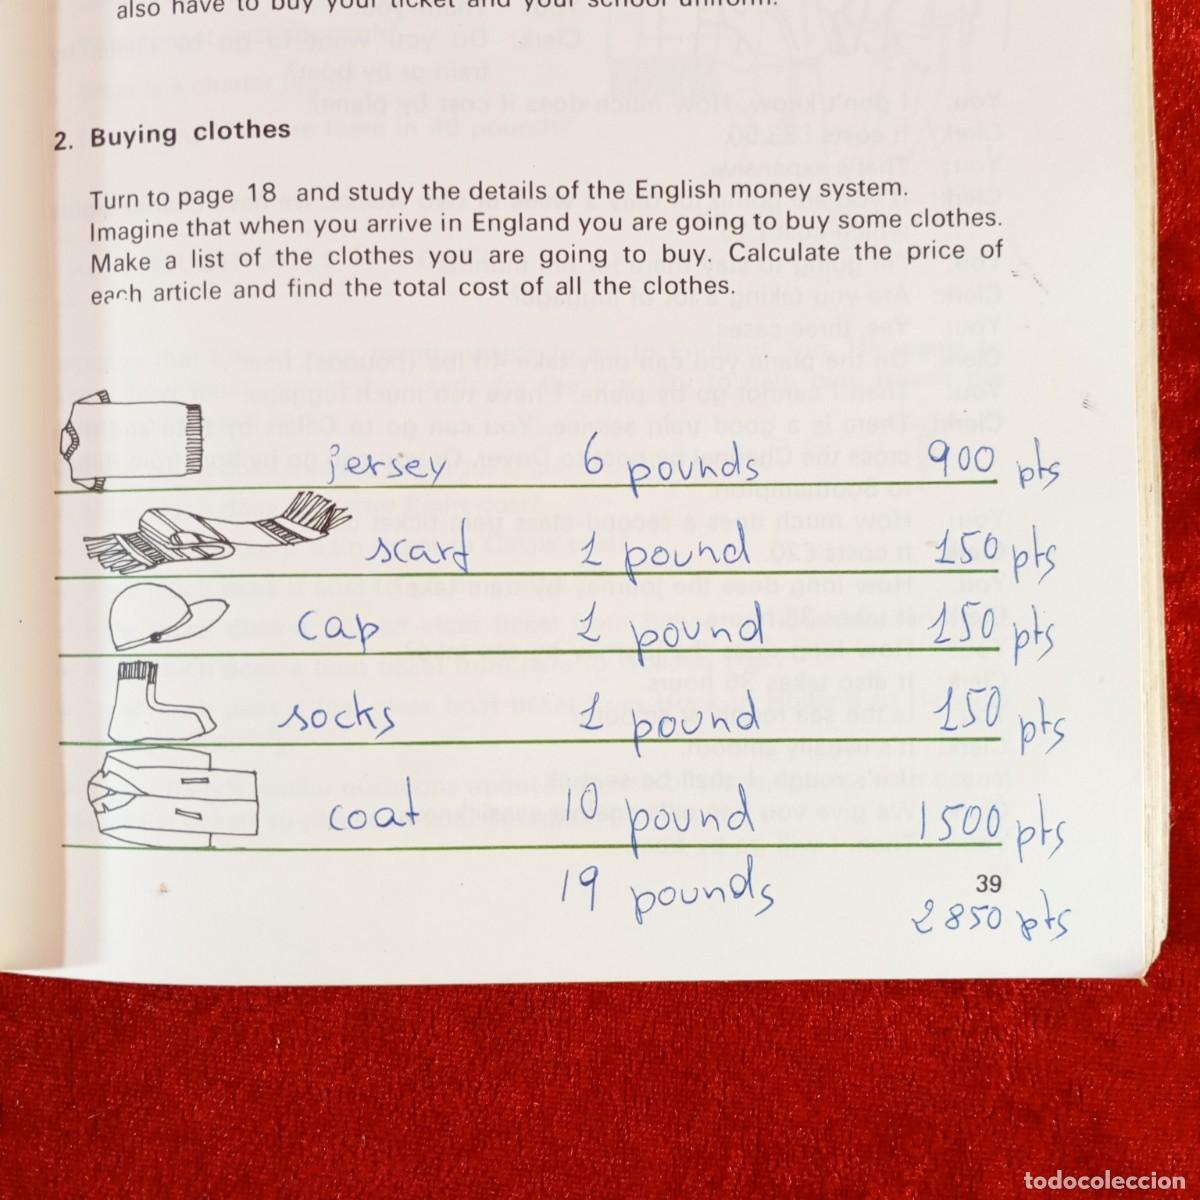 also have to buy your ticket and your school uniform.
2. Buying clothes
Turn to page 18 and study the details of the English money system.
Imagine that when you arrive in England you are going to buy some clothes.
Make a list of the clothes you are going to buy. Calculate the price of
each article and find the total cost of all the clothes.
jersey 6 pounds 900 pts
scarf 1 pound 150 pts
cap 1 pound 150 pts
socks 1 pound 150 pts
coat 10 pound 1500 pts
19 pounds 2850 pts
39
todocoleccion